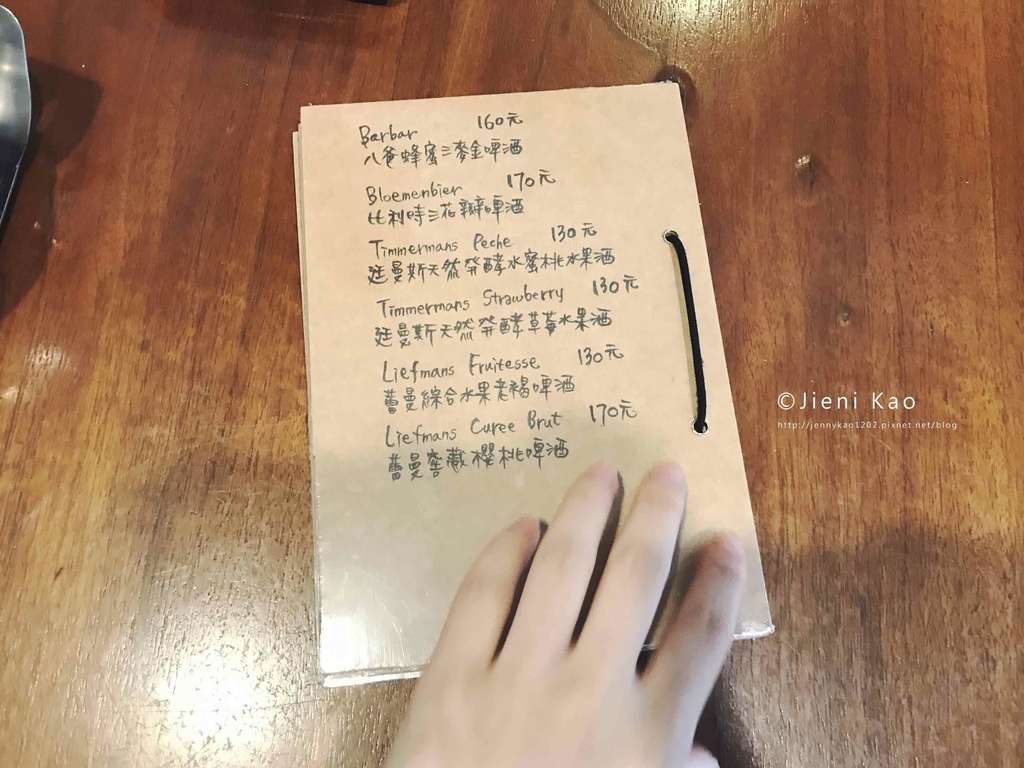 Barbar 160元
八爸蜂蜜三麥金啤酒
Bloemenbier 170元
比利時三花瓣啤酒
Timmermans Peche 130元
廷曼斯天然発酵水蜜桃水果酒
Timmermans Strawberry 130元
廷曼斯天然発酵草莓水果酒
Liefmans Fruitesse 130元
蕾曼綜合水果老褐啤酒
Liefmans Curee Brut 170元
蕾曼窖藏櫻桃啤酒
©Jieni Kao
http://jennykao1202.pixnet.net/blog